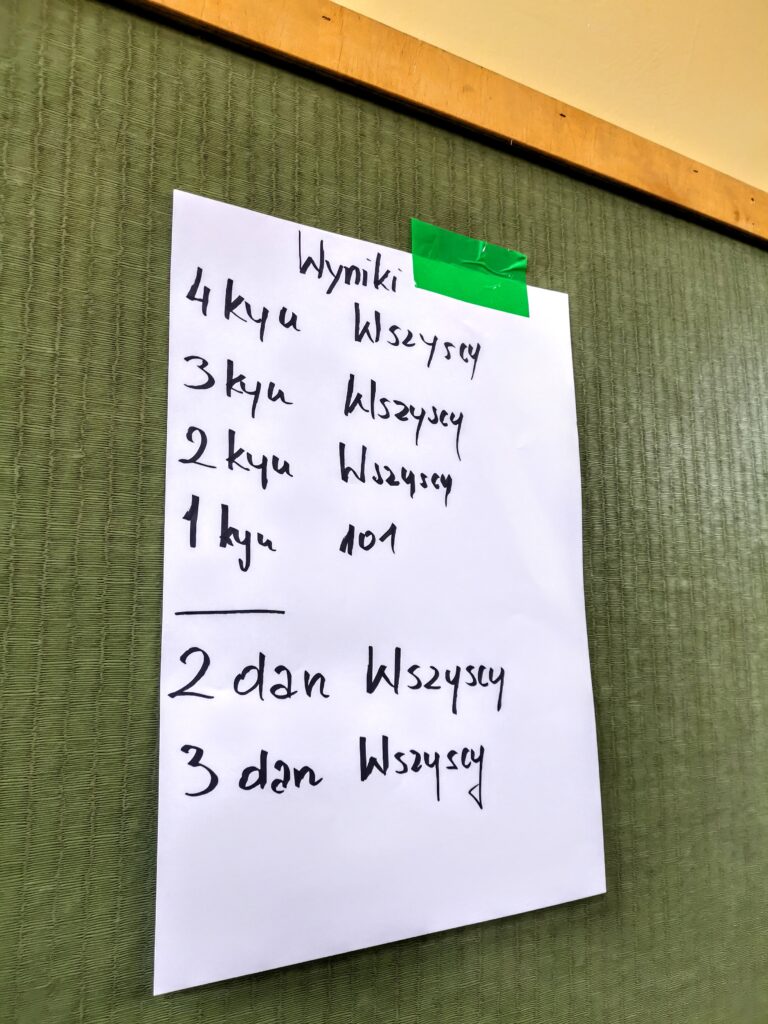 Wyniki
4 kyu Wszyscy
3 kyu Wszyscy
2 kyu Wszyscy
1 kyu 101
2 dan Wszyscy
3 dan Wszyscy